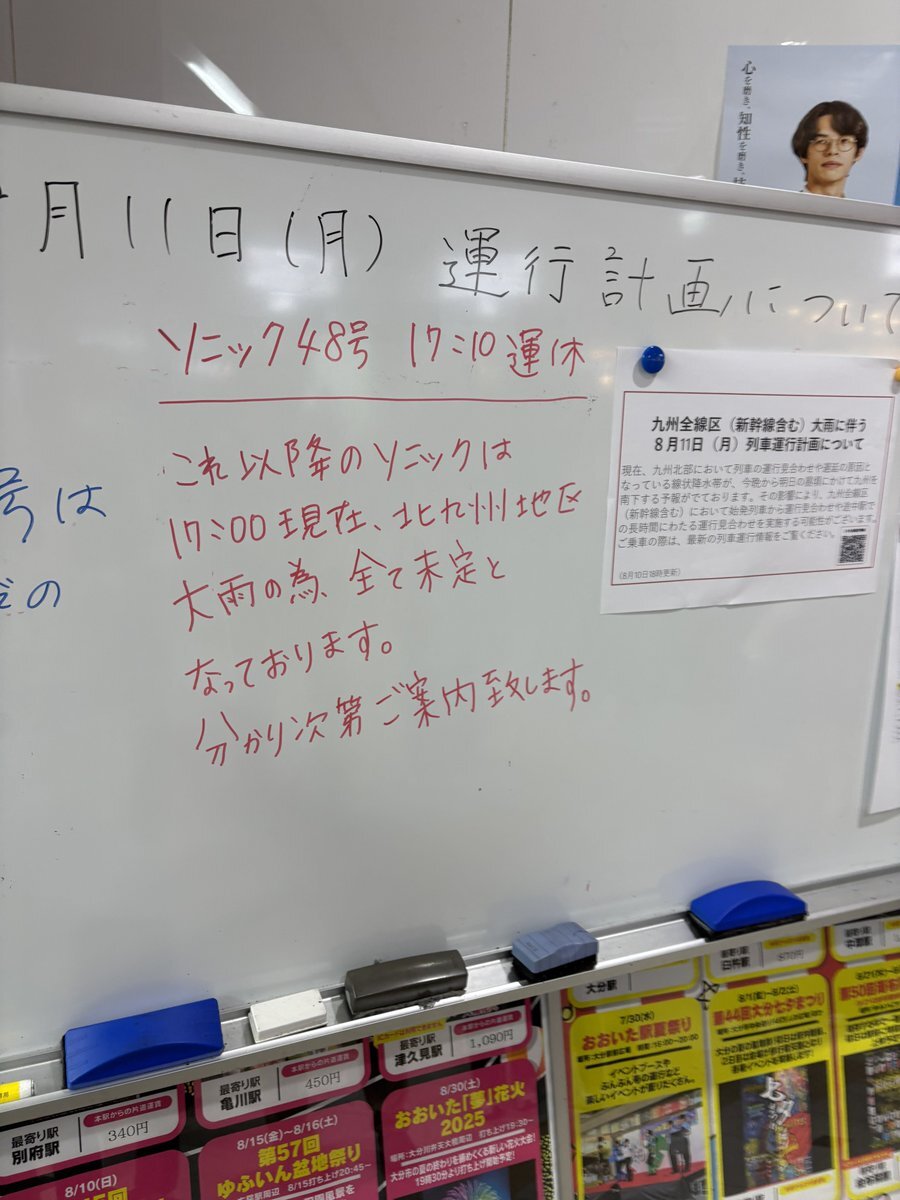 心を磨き、知性を磨き、
月11日(月) 運行計画について
ソニック48号 17:10 運休
これ以降のソニックは
17:00現在、北九州地区
大雨の為、全て未定と
なっております。
分かり次第ご案内致します。
号は
の
九州全線区(新幹線含む)大雨に伴う
8月11日(月)列車運行計画について
現在、九州北部において列車の運行見合わせや遅延の原因と
なっている線状降水帯が、今晩から明日の昼頃にかけて九州を
南下する予報がでております。その影響により、九州全線区
(新幹線含む)において始発列車から運行見合わせや途中駅で
の長時間にわたる運行見合わせを実施する可能性がございます。
ご乗車の際は、最新の列車運行情報をご覧ください。
(8月10日18時更新)
最寄り駅
別府駅
本駅からの片道運賃
340円
8/10(日)
最寄り駅
亀川駅
本駅からの片道運賃
450円
8/15(金)~8/16(土)
第57回
ゆふいん盆地祭り
8/15打ち上げ20:45~
最寄り駅
津久見駅
本駅からの片道運賃
1,090円
8/30(土)
おおいた「夢」花火
2025
場所:大分川弁天大橋周辺 打ち上げ19:30~
大分市の夏の終わりを締めくくる新しい花火大会!
19時30分より打ち上げ開始予定!
大分駅
7/30(水)
おおいた駅夏祭り
イベントブースや
ぶんぶん号の運行など
楽しいイベントが盛りだくさん。
臼杵駅
870円
8/1(金)~8/2(土)
第44回大分七夕まつり